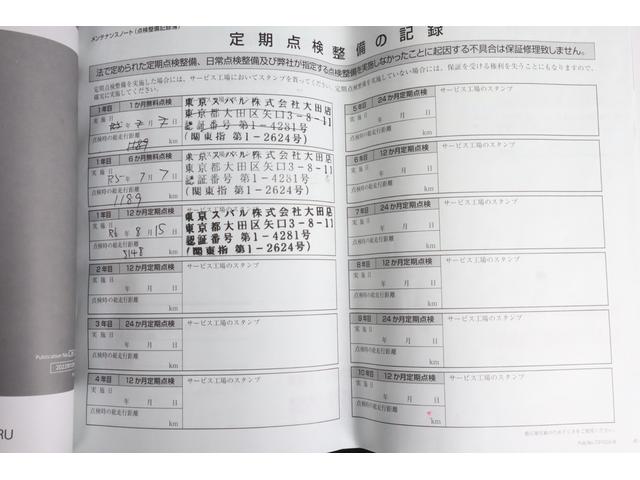 メンテナンスノート(点検整備記録簿)
定期点検整備の記録
法で定められた定期点検整備、日常点検整備及び弊社が指定する点検整備を実施しなかったことに起因する不具合は保証修理致しません。
定期点検整備を実施した場合には、サービス工場においてスタンプを貰ってください。定期点検整備を実施していない場合には、保証を受ける権利を失うこともありますので、
確実に実施してください。
1年目 1か月無料点検
実施日
R5年7月7日
点検時の総走行距離
1189 km
東京スバル株式会社大田店
東京都大田区矢口3-8-11
認証番号 第1-4281号
(関東指 第1-2624号)
1年目 6か月無料点検
実施日
R5年7月7日
点検時の総走行距離
1189 km
東京スバル株式会社大田店
東京都大田区矢口3-8-11
認証番号 第1-4281号
(関東指 第1-2624号)
1年目 12か月定期点検
実施日
R6年8月15日
点検時の総走行距離
5148 km
東京スバル株式会社大田店
東京都大田区矢口3-8-11
認証番号 第1-4281号
(関東指 第1-2624号)
2年目 12か月定期点検 サービス工場のスタンプ
実施日
年 月 日
点検時の総走行距離
km
3年目 24か月定期点検 サービス工場のスタンプ
実施日
年 月 日
点検時の総走行距離
km
4年目 12か月定期点検 サービス工場のスタンプ
実施日
年 月 日
点検時の総走行距離
km
5年目 24か月定期点検 サービス工場のスタンプ
実施日
年 月 日
点検時の総走行距離
km
6年目 12か月定期点検 サービス工場のスタンプ
実施日
年 月 日
点検時の総走行距離
km
7年目 24か月定期点検 サービス工場のスタンプ
実施日
年 月 日
点検時の総走行距離
km
8年目 12か月定期点検 サービス工場のスタンプ
実施日
年 月 日
点検時の総走行距離
km
9年目 24か月定期点検 サービス工場のスタンプ
実施日
年 月 日
点検時の総走行距離
km
10年目 12か月定期点検 サービス工場のスタンプ
実施日
年 月 日
点検時の総走行距離
km
Publication No.
RU